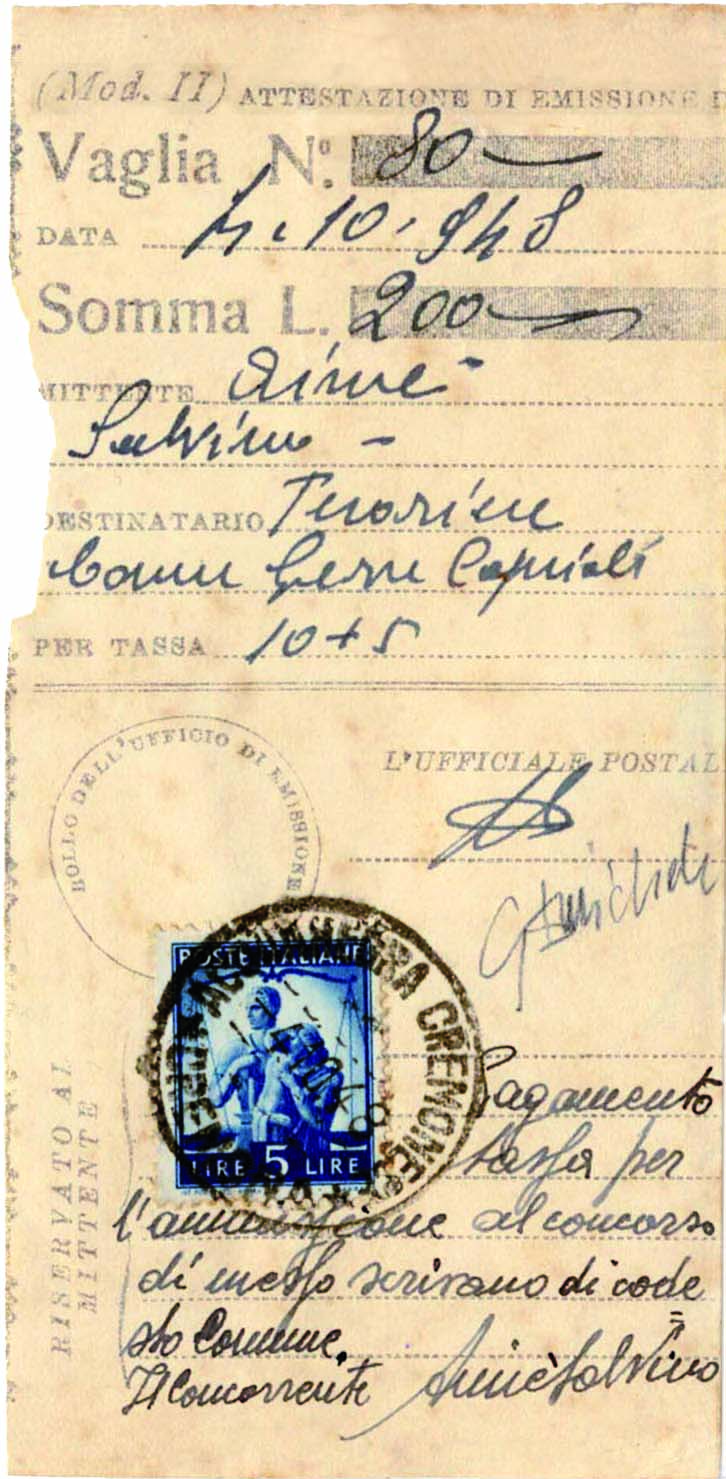 (Mod. II) ATTESTAZIONE DI EMISSIONE D
Vaglia N.º 80
DATA 4.10.948
Somma L. 200
MITTENTE
Salvino -
DESTINATARIO Tesoriere
Comune Gerre Caprioli
PER TASSA 10+5
BOLLO DELL'UFFICIO DI EMISSIONE
L'UFFICIALE POSTAL
POSTE ITALIANE
CREMONESE
4.10.48
LIRE 5 LIRE
RISERVATO AL
MITTENTE
Pagamento
tassa per
l'ammissione al concorso
di messo scrivano di code
sto Comune.
Il Concorrente Salvino